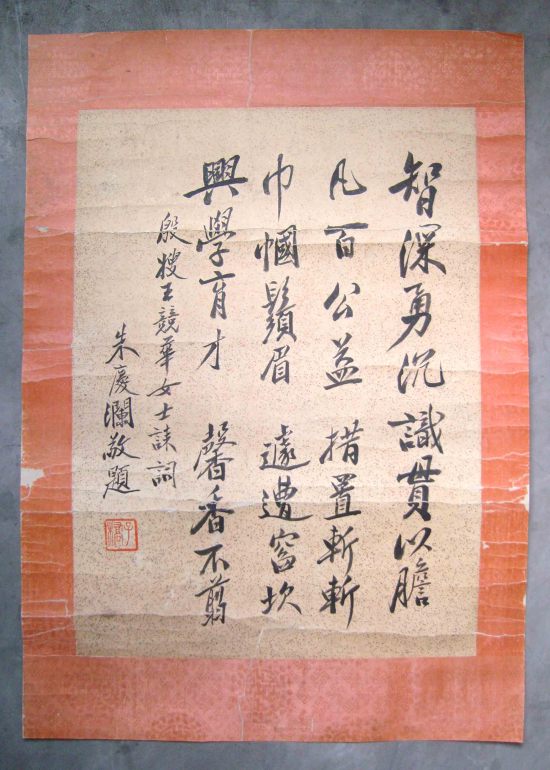 智深勇沉識貫以膽
凡百公益措置斬斬
巾幗鬚眉遽遭窞坎
興學育才馨香不翦
殷嫂王競華女士誄詞
朱慶瀾敬題
子橋